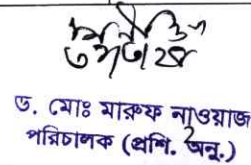 ড. মোঃ মারুফ নাওয়াজ
পরিচালক (প্রশি. অনু.)